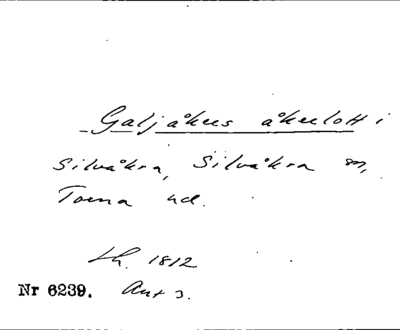 Galjåkers åkerlott i
Silvåkra, Silvåkra sn,
Torna hd.
Lh. 1812
Nr 6239. Ant 3.